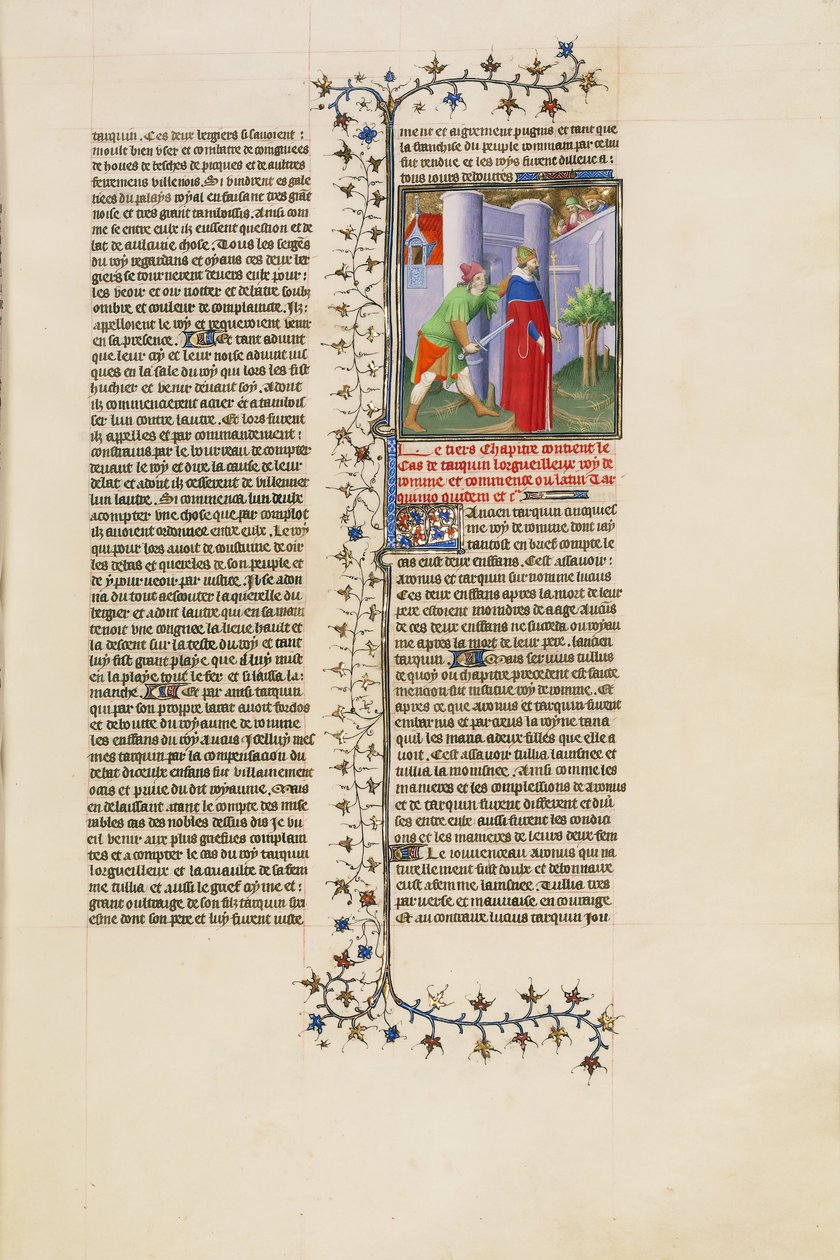 tarquin. Ces deux bergiers si savoient :
moult bien user et combatre de congniees
de houes de besches de picques et de aultres
ferremens villenois. Si vindrent es gale
ries du palays royal en faisant tres grāt
noise et tres grant tamboissis. Ainsi com
me se entre eulx ilz eussent question et de
bat de aulcune chose. Tous les sergēs
du roy regardans et oyans ces deux ber
giers se tournerent devers eulx pour :
les veoir et oir notter et debatre soubz
ombre et couleur de complaincte. Ilz :
appelloient le roy et requeroient venir
en sa presence. Et tant advint
que leur cry et leur noise advint ius
ques en la sale du roy qui lors les fist
huchier et venir devant soy. Adont
ilz commencierent a crier et a tambois
ser lun contre lautre. Et lors furent
ilz appelles et par commandement :
constrains par le bourreau de compter
devant le roy et dire la cause de leur
debat et adont ilz cesserent de villenner
lun lautre. Si commenca lun deulx
a compter une chose que par complot
ilz avoient ordonnee entre eulx. Le roy
qui pour lors avoit de coustume de oir
les debas et quereles de son peuple et
de y pourveoir par iustice. Il se adon
na du tout a escouter la querelle du
bergier et adont lautre qui en sa main
tenoit une congniee la lieve hault et
la descent sur la teste du roy et tant
luy fist grant playe que il luy mist
en la playe tout le fer et si laissa la :
manche. Et par ainsi tarquin
qui par son propre barat avoit forclos
et deboutte du royaume de romme
les enffans du roy Ancus Icelluy mes
mes tarquin par la compensacion du
debat diceulx enfans fut villainement
occis et prive du dit royaume. Mais
en delaissant atant le compte des mise
rables cas des nobles dessus dis Je vu
eil venir aux plus griefues complain
tes et a compter le cas du roy tarquin
lorgueilleux et la cruaulte de sa fem
me tullia et aussi le grief crime et :
grant oultraige de son filz tarquin sex
esme dont son pere et luy furent iuste
ment et aigrement pugnis et tant que
la franchise du peuple rommain par celui
fut rendue et les roys furent dilleuc a :
tous iours deboutes
Le tiers Chapitre contient le
Cas de tarquin lorgueilleux roy de
romme et commence ou latin Tar
quinio quidem et cͤ.
Ancien tarquin cincquies
me roy de romme dont iay
tantost en brief compte le
cas eust deux enffans. Cest assavoir :
Aronus et tarquin surnomme lucius
Ces deux enffans apres la mort de leur
pere estoient moindres de aage Aucūs
de ces deux enffans ne succeda ou royau
me apres la mort de leur pere. lancien
tarquin. Mais servius tullius
de quoy ou chapitre precedent est faicte
mencion fut institue roy de romme. Et
apres ce que Aronus et tarquin furent
embarnis et parcreus la royne tana
quil les maria a deux filles que elle a
voit. Cest assavoir tullia lainsnee et
tullia la moinsnee. Ainsi comme les
manieres et les complessions de Aronus
et de tarquin furent different et diū
ses entre eulx aussi furent les condici
ons et les manieres de leurs deux fem
Le iouvenceau Aronus qui na
turellement fust doulx et debonnaire
eust a femme lainsnee. Tullia tres
parverse et mauvaise en couraige
Et au contraire lucius tarquin Jou